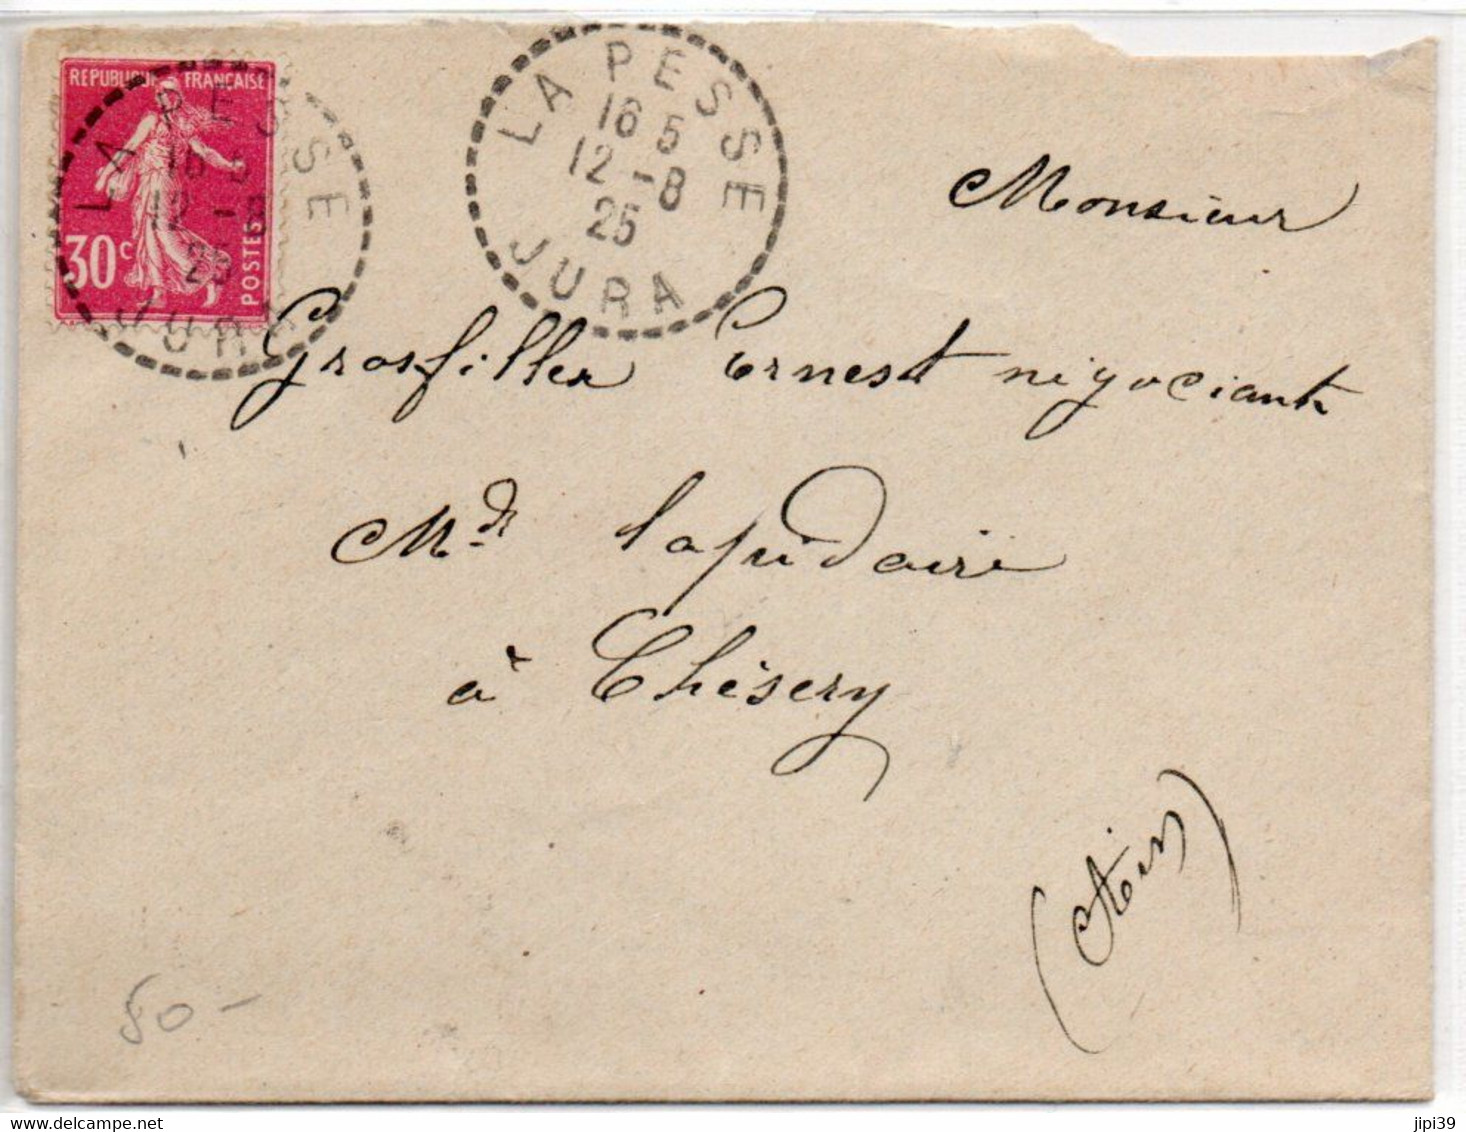 REPUBLIQUE FRANÇAISE
30c
POSTES
LA PESSE
16 5
12 -8
25
JURA
LA PESSE
16 5
12 -8
25
JURA
Monsieur
Grosfiller Ernest négociant
Md lapidaire
à Chésery
(Ain)
50 -
jipi39